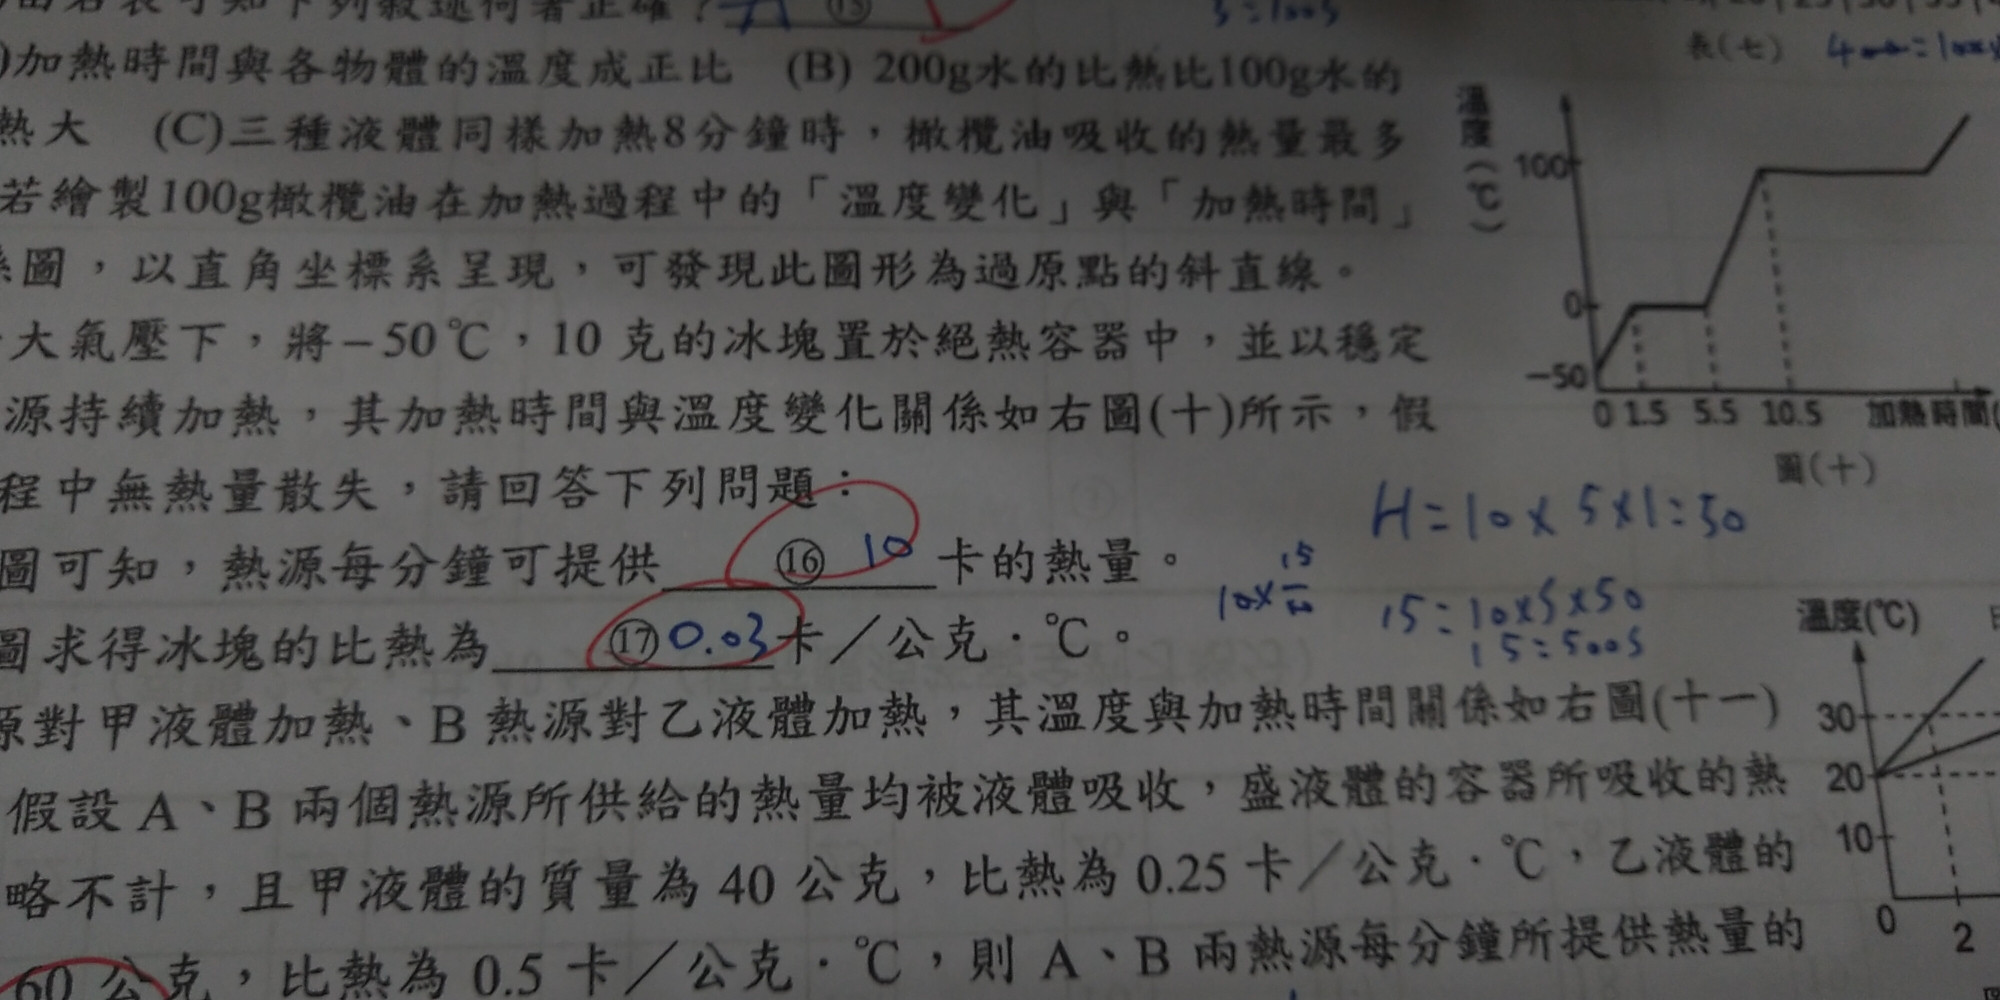 由右表可知下列敘述何者正確？ A ⑮
5=100S
)加熱時間與各物體的溫度成正比 (B) 200g水的比熱比100g水的
表(七)
熱大 (C)三種液體同樣加熱8分鐘時，橄欖油吸收的熱量最多
若繪製100g橄欖油在加熱過程中的「溫度變化」與「加熱時間」
圖，以直角坐標系呈現，可發現此圖形為過原點的斜直線。
大氣壓下，將－50℃，10 克的冰塊置於絕熱容器中，並以穩定
源持續加熱，其加熱時間與溫度變化關係如右圖(十)所示，假
程中無熱量散失，請回答下列問題：
圖可知，熱源每分鐘可提供 ⑯ 10 卡的熱量。
圖求得冰塊的比熱為 ⑰ 0.03 卡／公克．℃。
溫度(℃)
100
0
－50
0 1.5 5.5 10.5 加熱時間(
圖(十)
H=10×5×1=50
15=10×5×50
15=500S
源對甲液體加熱、B 熱源對乙液體加熱，其溫度與加熱時間關係如右圖(十一)
假設 A、B 兩個熱源所供給的熱量均被液體吸收，盛液體的容器所吸收的熱
略不計，且甲液體的質量為 40 公克，比熱為 0.25 卡／公克．℃，乙液體的
60 公克，比熱為 0.5 卡／公克．℃，則 A、B 兩熱源每分鐘所提供熱量的
溫度(℃)
30
20
10
0
2